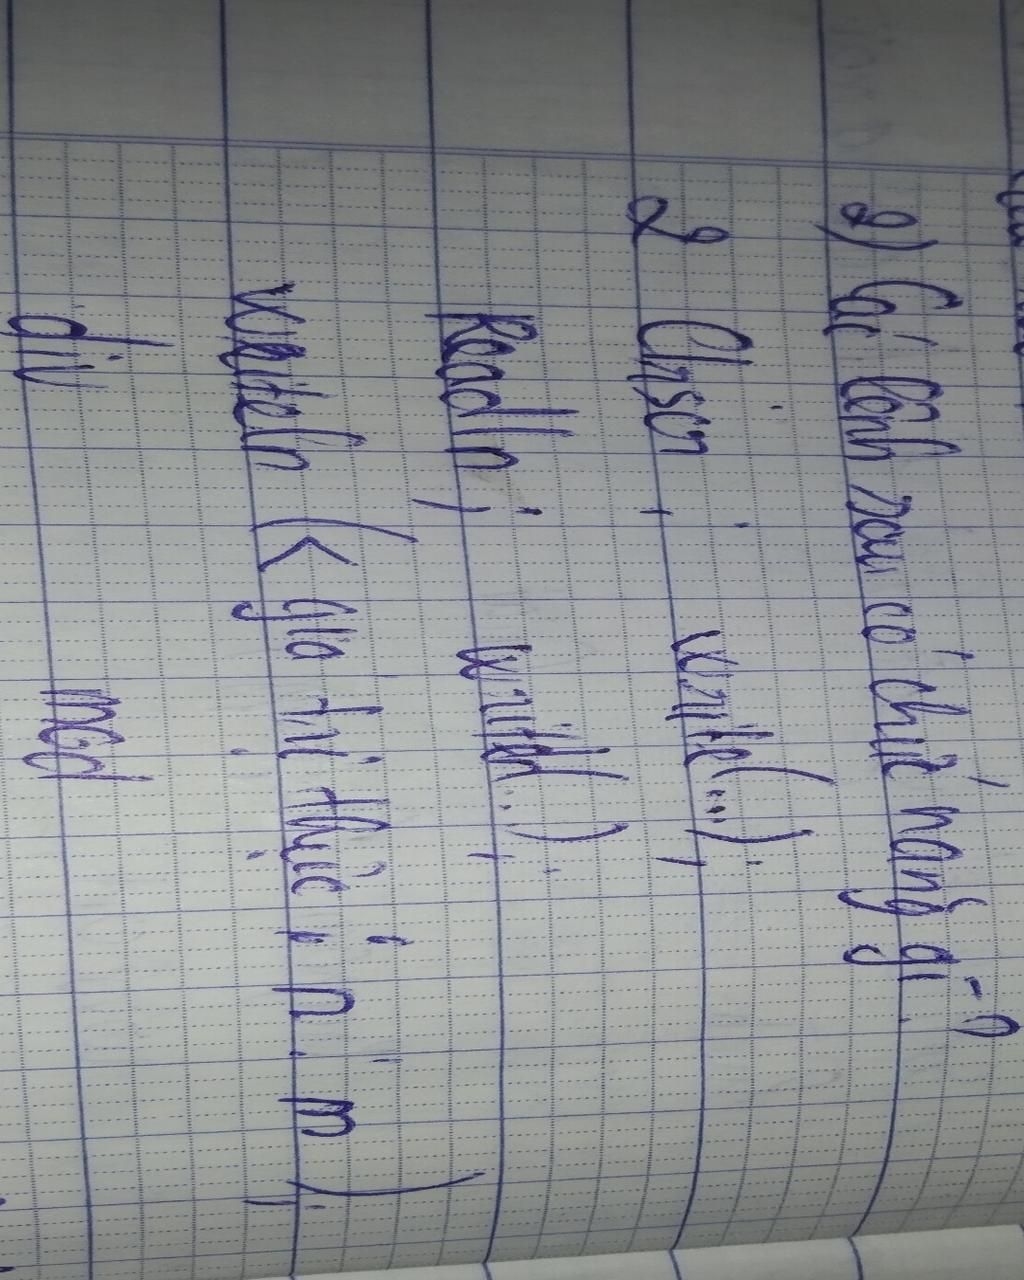 2) Các lệnh sau có chức năng gì?
Clrscr; write(...);
Readln; writeln(...);
writeln(< giá trị thức: n: m);
div mod